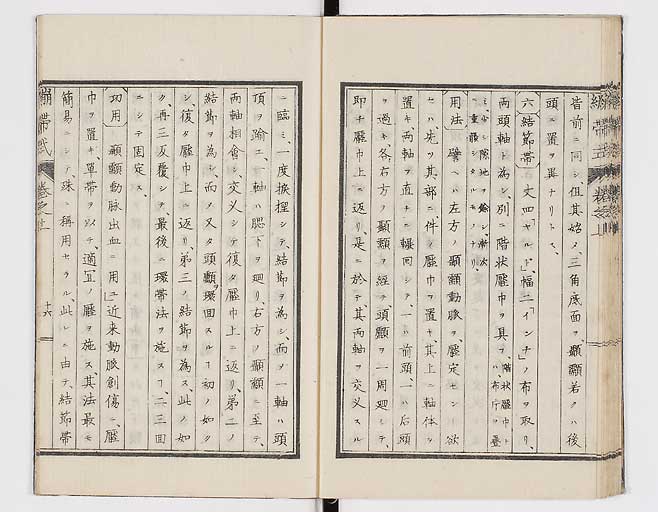 皆前ニ同シ但其始メ三角底面ヲ、顳顬若クハ後
頭ニ置ヲ異ナリトス、
六結節帯 長丈四「ヤルド」、幅二「インチ」ノ布ヲ取リ、
両頭軸ト為シ、別ニ階状壓巾ヲ具フ、階状壓巾トハ、布片ヲ疊
ミ、少シク隙地ヲ餘シ、漸次ニ重疊シタルモノナリ、
用法 譬ヘハ左方ノ顳顬動脉ヲ壓定セント欲
セハ先ツ其部ニ、件ノ壓巾ヲ置キ、其上ニ軸体ヲ
置キ両軸ヲ直チニ輾回シテ、一ハ前頭、一ハ后頭
ヲ過キ、各右方ノ顳顬ヲ経テ、頭顱ヲ一周廻シテ、
即チ壓巾上ニ返リ、是ニ於テ、其両軸ヲ交叉スル
ニ臨ミ、一度捩捏シテ結節ヲ為シ、而メ一軸ハ頭
頂ヲ踰エ、一軸ハ腮下ヲ廻リ、右方ノ顳顬ニ至テ、
両軸相會シ、交叉シテ復タ壓巾上ニ返リ、第二ノ
結節ヲ為シ、而メ又タ頭顱ヲ環回スルコ初ノ如ク
シ、復タ壓巾上ニ返リ、第三ノ結節ヲ為ス、此ノ如
ク、再三反覆シテ、最後ニ環帯法ヲ施スコ、二三回
ニシテ固定ス、
功用 顳顬動脉出血ニ用ユ近来動脉創傷ニ、壓
巾ヲ置キ、單帯ヲ以テ、適宜ノ壓ヲ施ス其法最モ
簡易ニシテ、殊ニ稱用セラル、此レニ由テ、結節帯
繃帯式 巻之上 十六